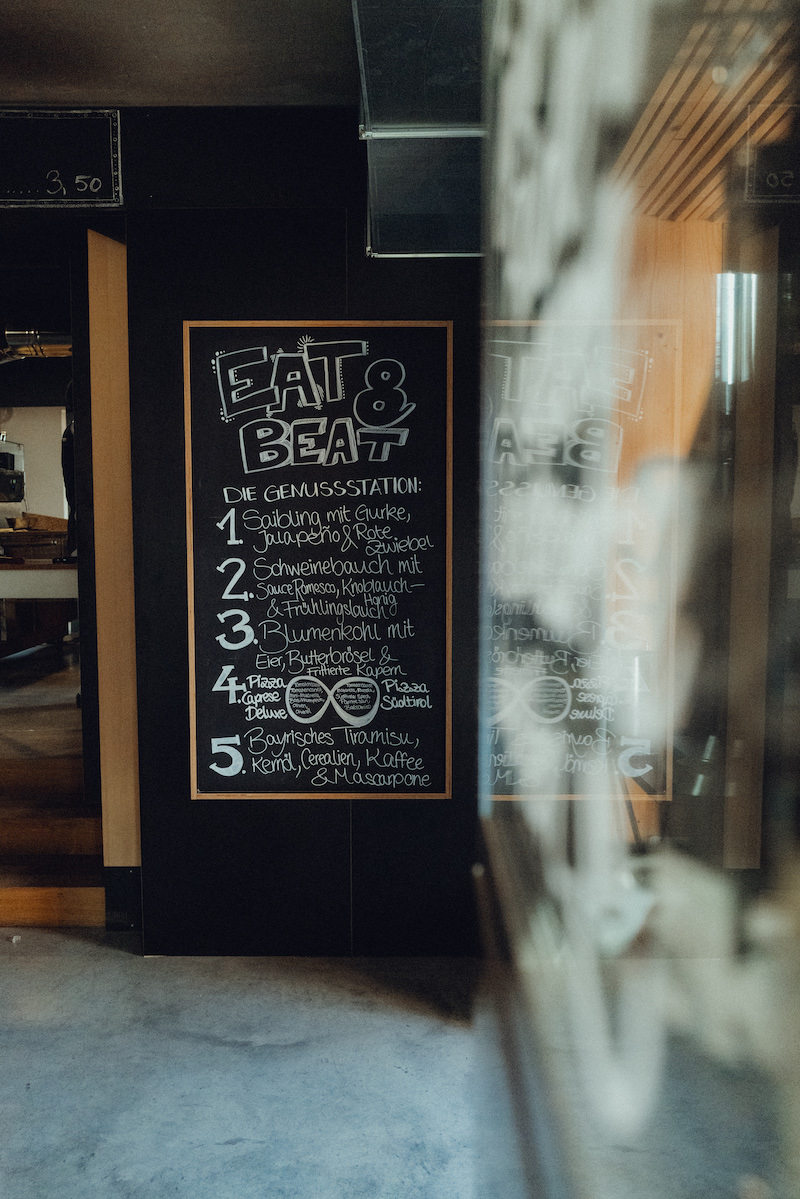 3,50
EAT &
BEAT
DIE GENUSSSTATION:
1. Saibling mit Gurke,
Jalapeño & Rote
Zwiebel
2. Schweinebauch mit
Sauce Romesco, Knoblauch-
Honig
& Frühlingslauch
3. Blumenkohl mit
Eier, Butterbrösel &
Frittierte Kapern
4. Pizza
Caprese
Deluxe
Pizza
Südtirol
5. Bayrisches Tiramisu,
Kernöl, Cerealien, Kaffee
& Mascarpone